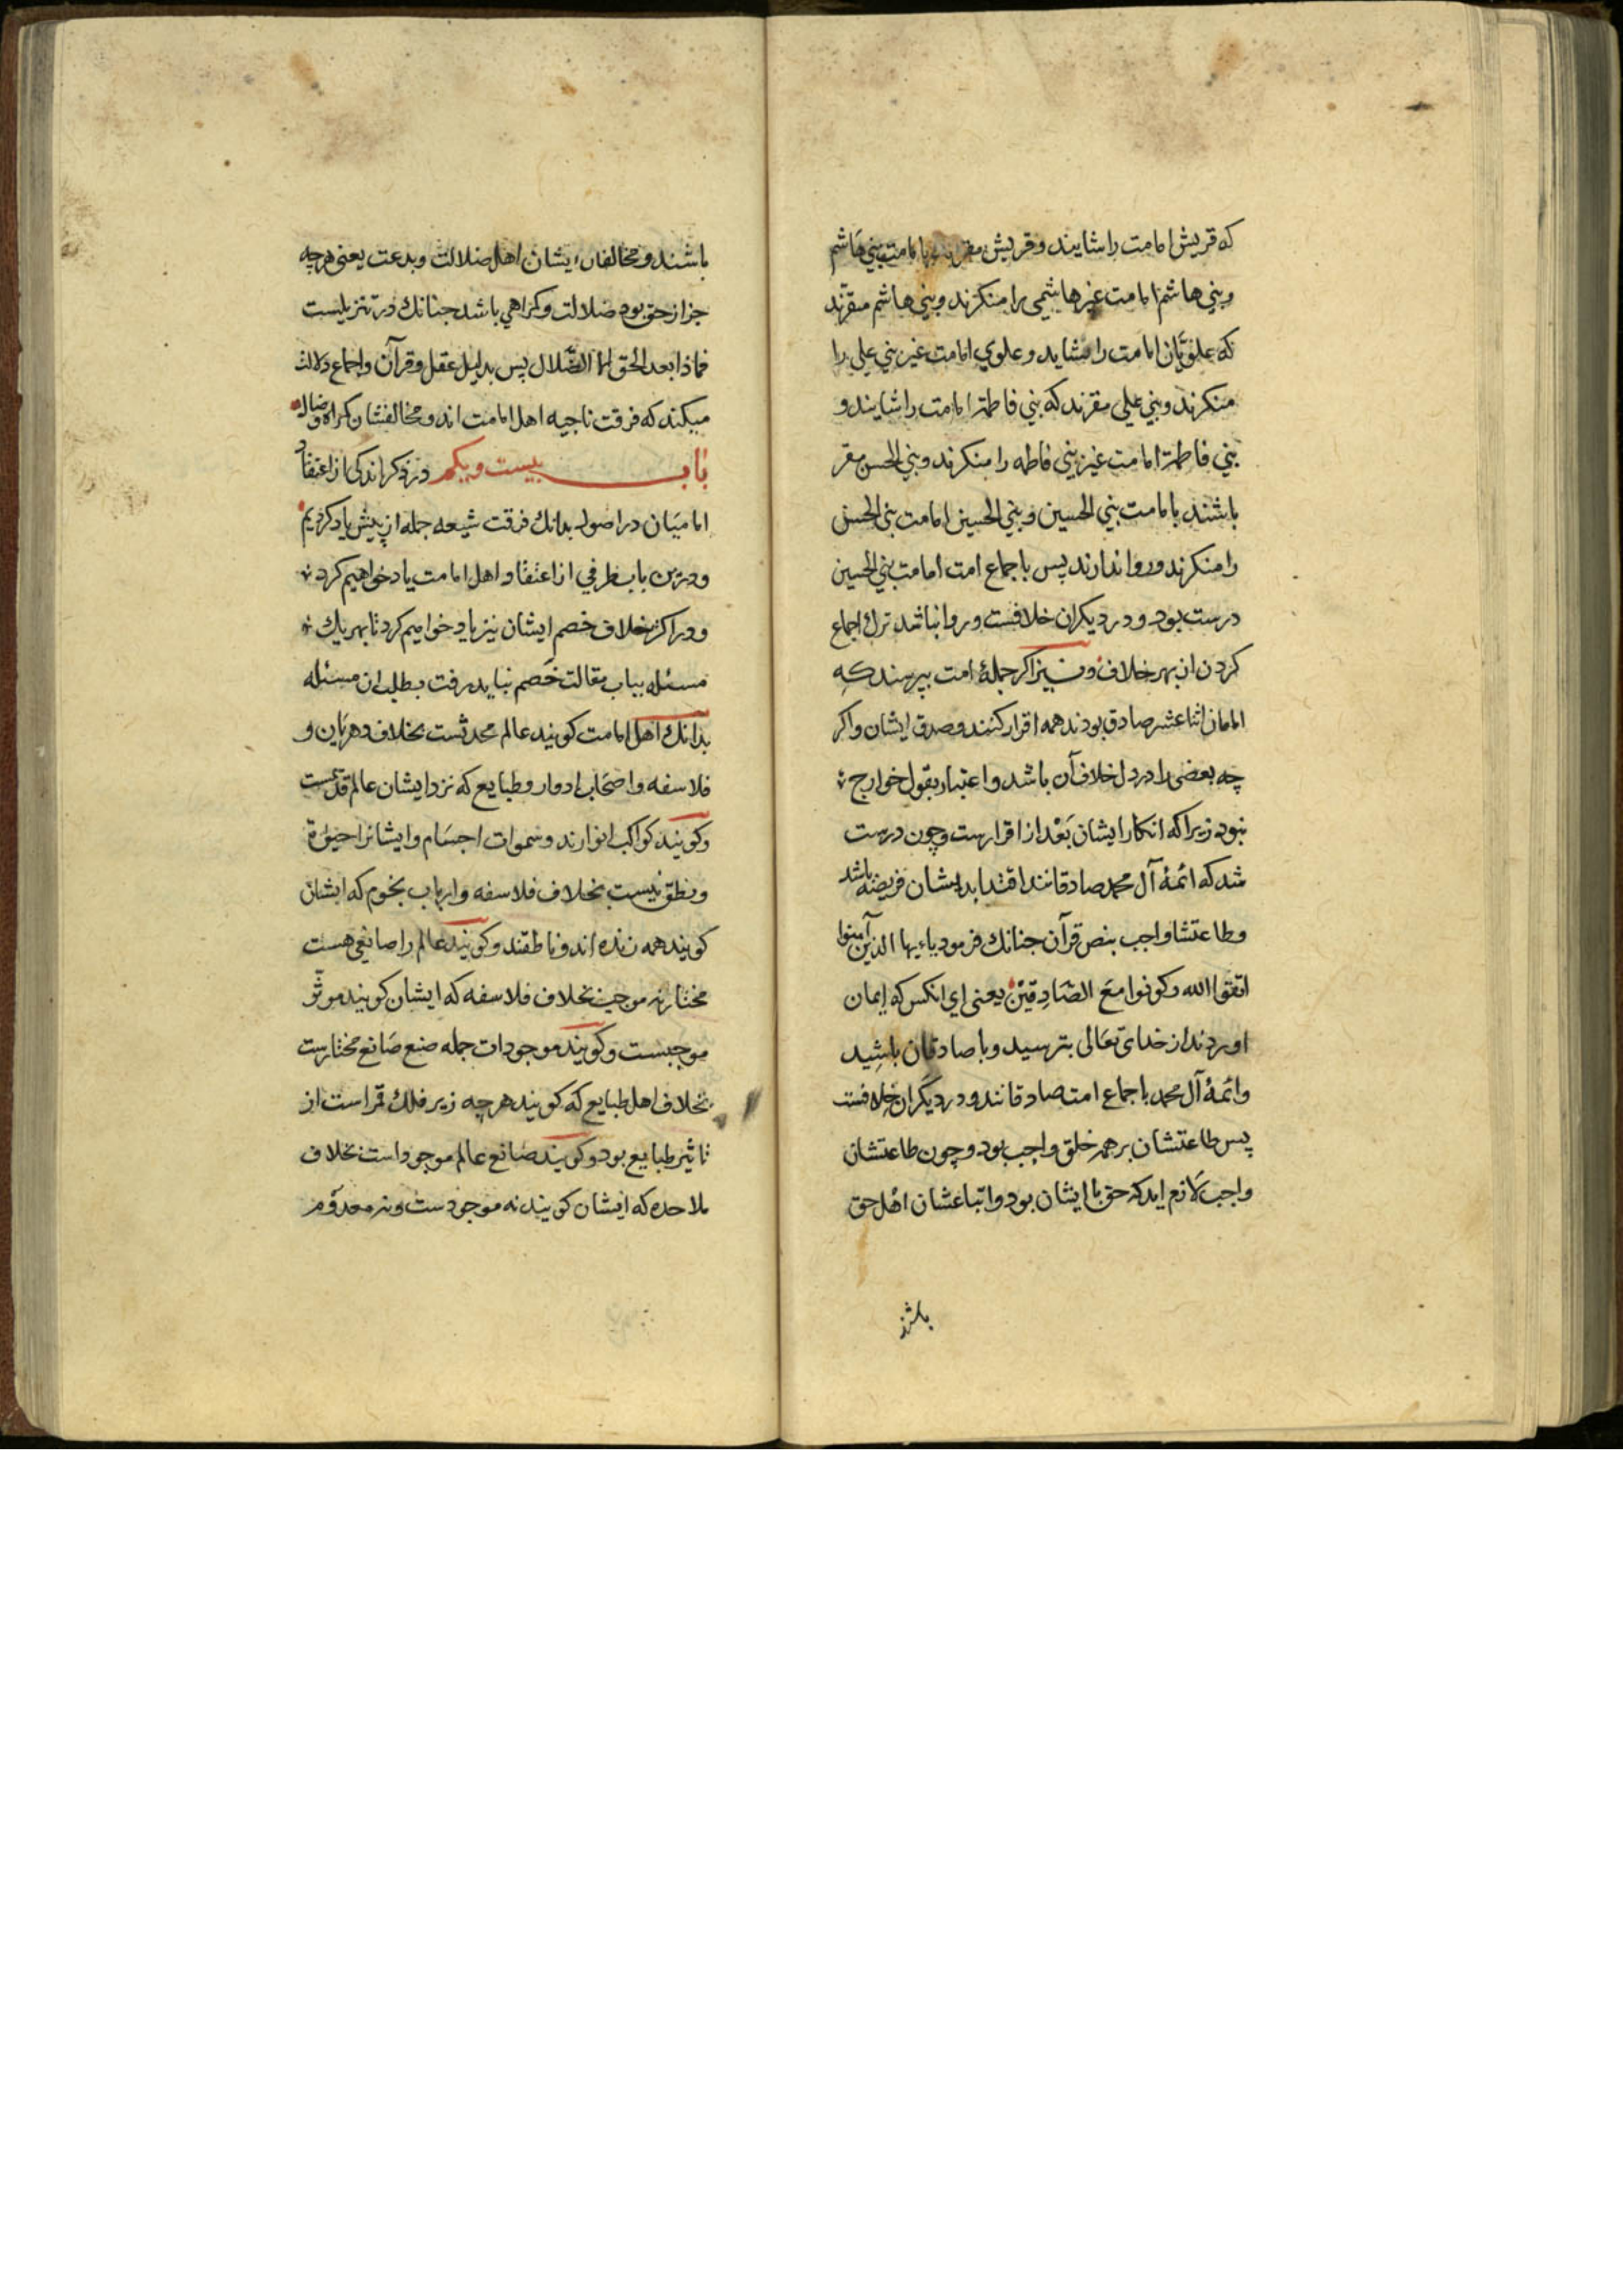 که قریش امامت را شایند و قریش مقرند بامامت بني هاشم
وبني هاشم امامت غیر هاشمی را منکرند وبني هاشم مقرّند
که علویّان امامت را شاید و علوي امامت غیر بني علي را
منکرند وبني علي مقرند که بني فاطمة امامت را شایند و
بني فاطمة امامت غیر بني فاطمه را منکرند وبني الحسن مقر
باشند بامامت بني الحسین و بني الحسین امامت بني الحسن
را منکرند و روا ندارند پس باجماع امت امامت بني الحسین
درست بود و در دیکران خلافست و روا نباشد ترك اجماع
کردن از بهر خلاف و نیز اکر جملهٔ امت بپرسند که
امامان اثنا عشر صادق بودند همه اقرار کنند و صدق ایشان و اکر
چه بعضی را در دل خلاف آن باشد و اعتبار بقول خوارج
نبود زیرا که انکار ایشان بَعْد از اقرارست و چون درست
شد که ائمهٔ آل محمد صادقانند اقتدا بدیشان فریضه باشد
وطاعتشا واجب بنص قرآن جنانك فرمود یاءیها الذین آمنوا
اتقوا الله وکونوا معَ الصّادِقینْ یعنی اي انکس که ایمان
اوردند از خدای تعَالی بترسید و با صادقان باشِید
وائمهٔ آل محمد باجماع امت صادقانند و در دیکَران خِلافست
پس طاعتشان بر همه خلق واجب بود و چون طاعتشان
واجب لاَزم اید که حق با ایشان بود و اتباعشان اهل حق
باشند
باشند و مخالفان ایشان اهل ضلالت و بدعت یعنی هرچه
جز از حق بود ضلالت و کمراهي باشد جنانك در تنزیلست
فماذا بعد الحق الا الضّلال پس بدلیل عقل و قرآن و اجماع دلالت
میکند که فرقت ناجیه اهل امامت اند و مخالفشان کمراه و ضال
باب بیست و یکم در ذکر اندکی از اعتقاد
امامیَان در اصول بدانك فرقت شیعه جمله از پیش یاد کردیم
و درین باب طرفي از اعتقاد اهل امامت یاد خواهیم کرد
و در اکثر خلاف خصم ایشان نیز یاد خواهیم کرد تا بهر یك
مسئله بباب مقالت خَصم نباید رفت بطلب ان مسئله
بدانك اهل امامت کویند عالم محدثست بخلاف دهریان و
فلاسفه و اصحَاب ادوار و طبایع که نزد ایشان عالم قدیمست
وکویند کواکب انوارند و سموات اجسَام و ایشانرا حیوٰة
و نطق نیست بخلاف فلاسفه و ارباب نجوم که ایشان
کویند همه زنده اند و ناطقند وکویند عالم را صانعی هست
مختار نه موجب بخلاف فلاسفه که ایشان کویند موثّر
موجبست وکویند موجودات جمله صنع صَانع مختارست
بخلاف اهل طبایع که کویند هرچه زیر فلك قمر است از
تاثیر طبایع بود وکویند صانع عالم موجود است بخلاف
ملاحده که ایشان کویند نه موجودست و نه معدوم